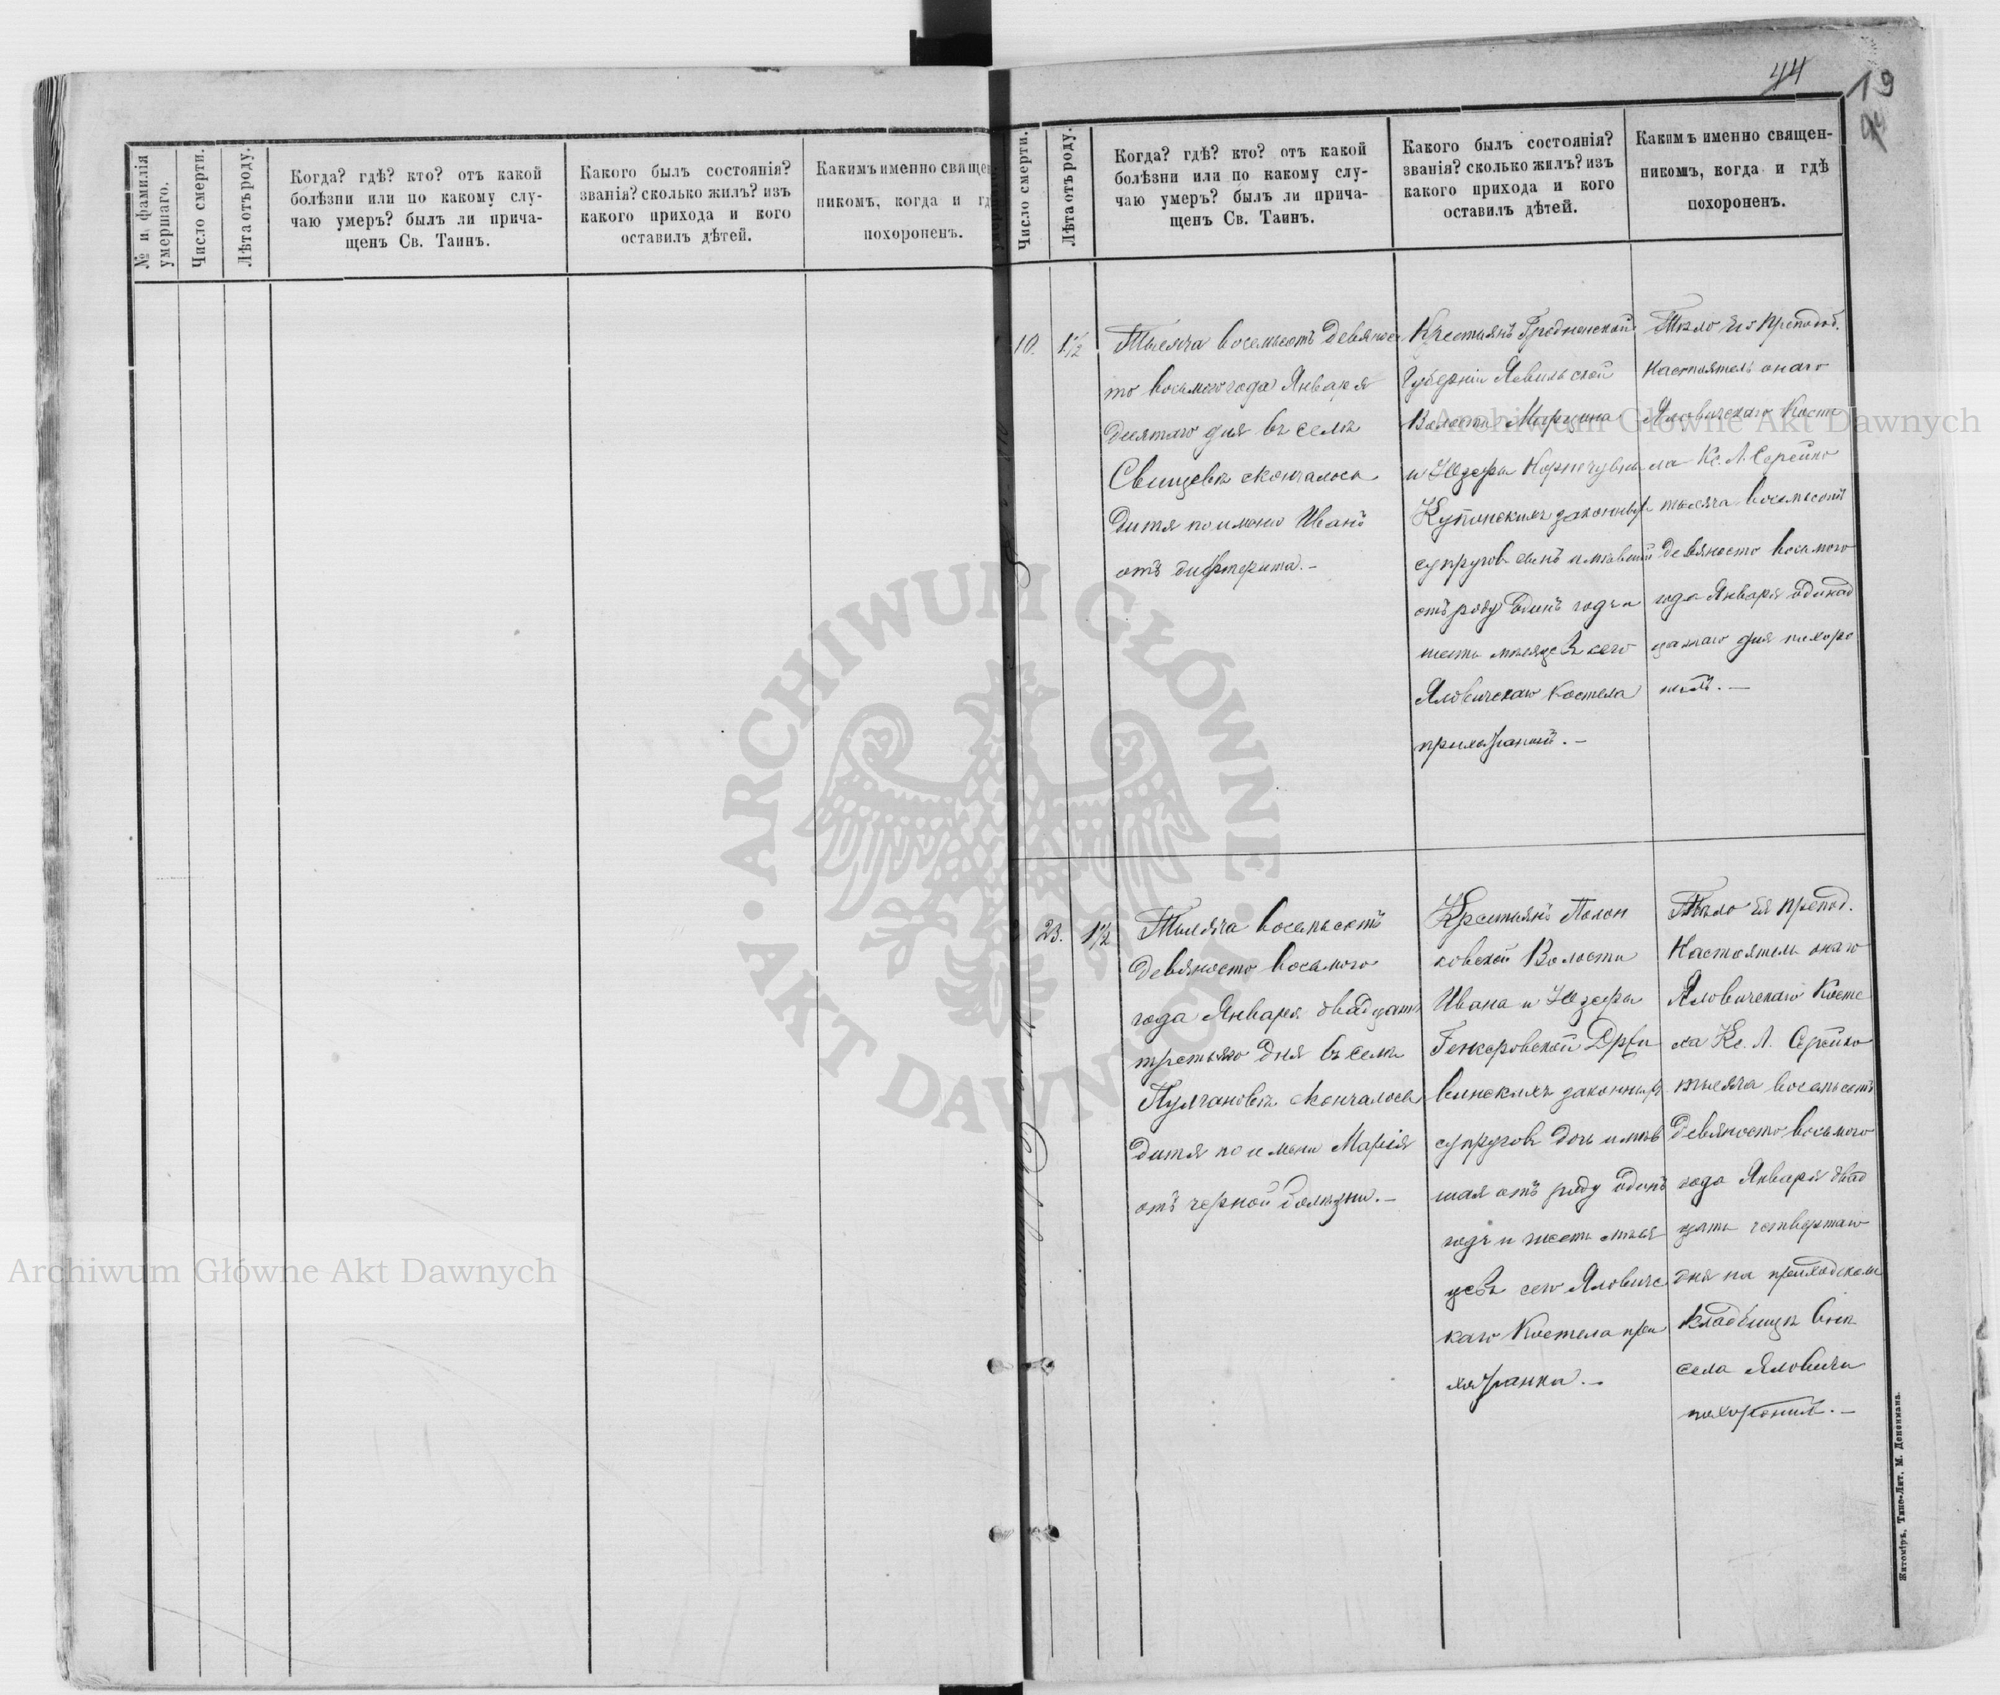 44
19
№ и фамилія умершаго.
Число смерти.
Лѣта отъ роду.
Когда? гдѣ? кто? отъ какой
болѣзни или по какому слу-
чаю умеръ? былъ ли прича-
щенъ Св. Таинъ.
Какого былъ состоянія?
званія? сколько жилъ? изъ
какого прихода и кого
оставилъ дѣтей.
Какимъ именно свяще
никомъ, когда и г
похороненъ.
Число смерти.
Лѣта отъ роду.
Когда? гдѣ? кто? отъ какой
болѣзни или по какому слу-
чаю умеръ? былъ ли прича-
щенъ Св. Таинъ.
Какого былъ состоянія?
званія? сколько жилъ? изъ
какого прихода и кого
оставилъ дѣтей.
Какимъ именно священ-
никомъ, когда и гдѣ
похороненъ.
10.
1½
Тысяча восемьсотъ девянос
то восьмого года Января
десятаго дня въ селѣ
скончалось
дитя по имени Иванъ
отъ дифтерита.–
Крестьянъ Гродненской
Губерніи
Волости Марцина
и Юзефы
законныхъ
супруговъ сынъ имѣвшій
отъ роду одинъ годъ и
шесть мѣсяцевъ сего
Яловичскаго Костела
прихожанинъ.–
Тѣло его преподоб.
Настоятель онаго
Яловичскаго Косте
ла Кс. Л.
тысяча восемьсотъ
девяносто восьмого
года Января одинад
цатаго дня похоро
нилъ.–
23.
1½
Тысяча восемьсотъ
девяносто восьмого
года Января двадцать
третьяго дня въ селѣ
скончалось
дитя по имени Марія
отъ черной болѣзни.–
Крестьянъ
Волости
Ивана и Юзефы
законныхъ
супруговъ дочь имѣв
шая отъ роду одинъ
годъ и шесть мѣся
цевъ сего Яловичс
каго Костела при
хожанка.–
Тѣло ея препод.
Настоятель онаго
Яловичскаго Косте
ла Кс. Л.
тысяча восемьсотъ
девяносто восьмого
года Января двад
цать четвертаго
дня на приходскомъ
кладбищѣ внѣ
села Яловичи
похоронилъ.–
Житоміръ, Типо-Лит. М. Дененмана.
ARCHIWUM GŁÓWNE • AKT DAWNYCH •
Archiwum Główne Akt Dawnych
Archiwum Główne Akt Dawnych